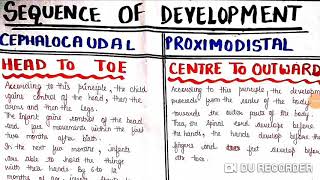 SEQUENCE OF DEVELOPMENT
CEPHALOCAUDAL
HEAD TO TOE
According to this principle, the child
gains control of the head, then the
arms and then the legs.
The Infant gains control of the head
and face movements within the first
two months after birth.
In the next few months, infants
are able to hold the things
with their hands. By 6 to 12
months of age
PROXIMODISTAL
CENTRE TO OUTWARD
According to this principle, the development
proceeds from the center of the body
towards the outer parts of the body.
Thus the spinal cord develops before
the hands, the hands develop before the
fingers and feet develop before
the toes.
DU RECORDER